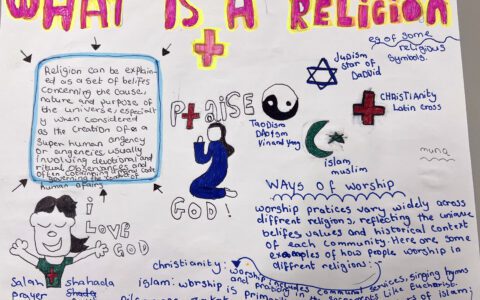 WHAT IS A RELIGION
eg of some
religious
symbols.
Religion can be explain-
ed as a set of beliefs
concerning the cause,
nature and purpose of
the universe, especiall
y when considered
as the creation of a
super human angency
or angencies usually
involving devotional and
ritual observances and
often containing a moral code
governing the conduct of
human affairs
PRAISE
GOD!
JuDism
Star of
DaDvid
TaoDism
DAOism
Yin and yang
CHRisTianity
Latin cross
islam
muslim
muna
i
LOVE
GOD
salah shahada
prayer
WAYS OF WORSHIP
worship pratices vary widely across
diffrent religions, reflecting the unique
belifes values and historical context
of each community. Here are some
examples of how people worship in
different religions:
christianity: worship includes communal services, singing hymns
and praying in the
like Eucharist.
islam: worship is